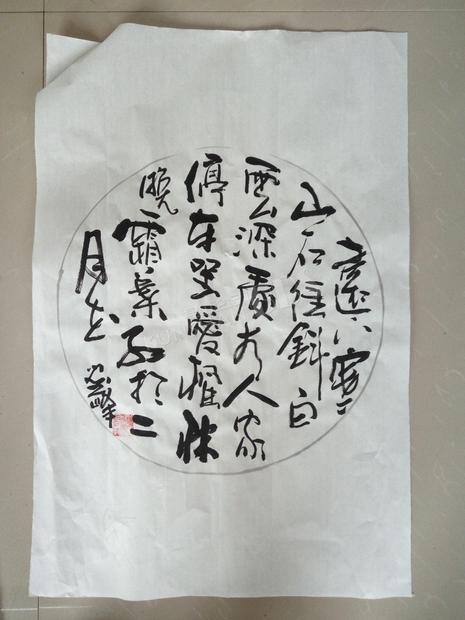 遠上寒
山石徑斜白
雲深處有人家
停車坐愛楓林
晚霜葉紅於二
月花